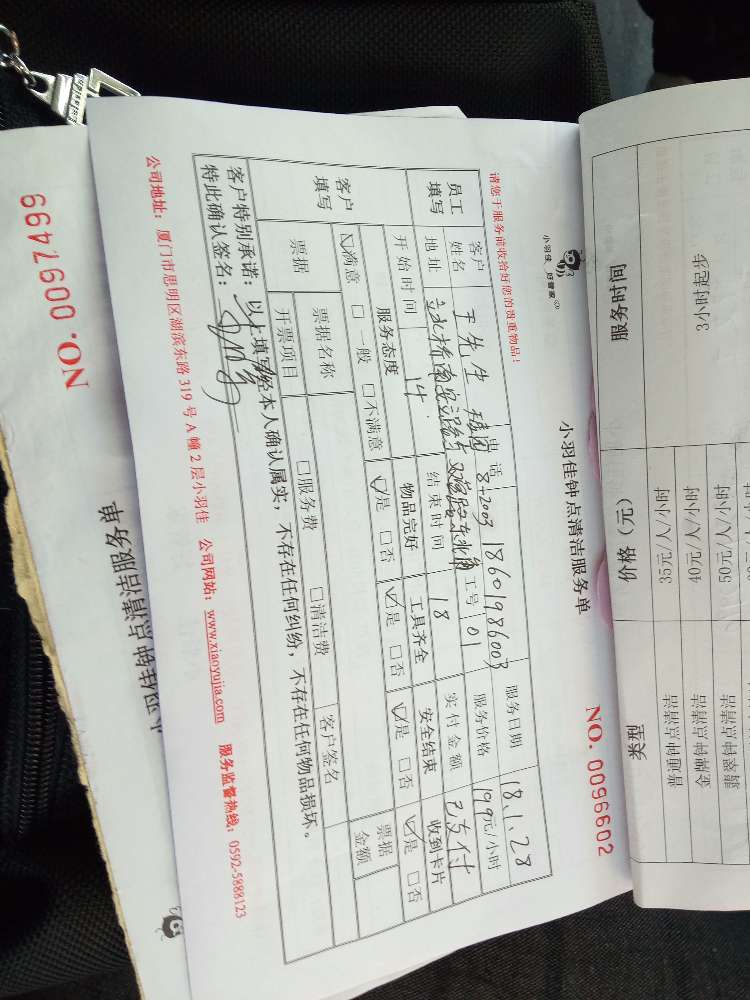 小羽佳 好管家
小羽佳钟点清洁服务单
NO. 0096602
请您于服务前收拾好您的贵重物品!
员工填写
客户姓名 王先生 电话 8+2003 18601986003 服务日期 18.1.28
地址 双 路东北角 工号 01 服务价格 199元/小时
开始时间 14 结束时间 18 实付金额 已支付
客户填写
服务态度 物品完好 工具齐全 安全结束 收到卡片
☑满意 □一般 □不满意 ☑是 □否 ☑是 □否 ☑是 □否 ☑是 □否
票据 票据名称 □服务费 □清洁费 客户签名 票据金额
开票项目
客户特别承诺:以上填写经本人确认属实,不存在任何纠纷,不存在任何物品损坏。
特此确认签名:
公司地址:厦门市思明区湖滨东路 319 号 A 幢 2 层小羽佳 公司网站:www.xiaoyujia.com 服务监督热线:0592-5888123
小羽佳钟点清洁服务单
NO. 0097499
服务时间 价格(元) 类型
3小时起步
35元/人/小时 普通钟点清洁
40元/人/小时 金牌钟点清洁
50元/人/小时 翡翠钟点清洁